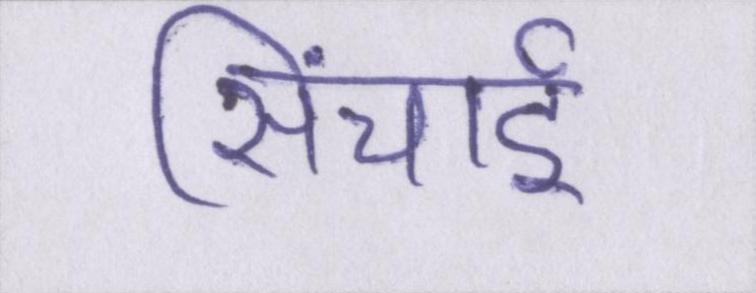 सिंचाई